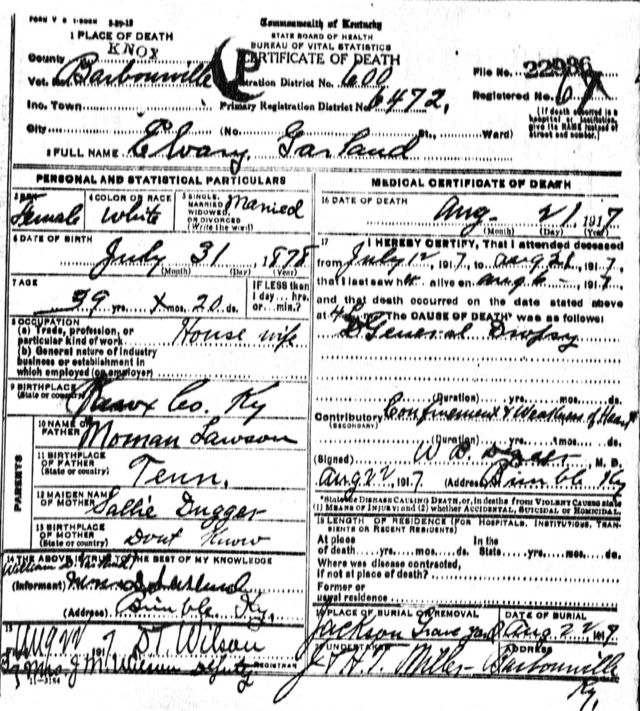 FORM V S 1-500M 3-29-15
Commonwealth of Kentucky
STATE BOARD OF HEALTH
BUREAU OF VITAL STATISTICS
CERTIFICATE OF DEATH
1 PLACE OF DEATH
County KNOX
Vot. Barbourville Registration District No. 600 File No. 22986
Inc. Town Primary Registration District No. 6472. Registered No.
City (No. St., Ward)
[If death occurred in a hospital or institution, give its NAME instead of street and number.]
2 FULL NAME Elvary Garland
PERSONAL AND STATISTICAL PARTICULARS
3 SEX Female
4 COLOR OR RACE White
5 SINGLE, MARRIED, WIDOWED, OR DIVORCED (Write the word) Married
6 DATE OF BIRTH July 31 1878
(Month) (Day) (Year)
7 AGE 39 yrs. X mos. 20 ds.
IF LESS than 1 day... hrs. or... min.?
8 OCCUPATION
(a) Trade, profession, or particular kind of work House wife
(b) General nature of industry business or establishment in which employed (or employer)
9 BIRTHPLACE (State or country) Knox Co. Ky
PARENTS
10 NAME OF FATHER Moman Lawson
11 BIRTHPLACE OF FATHER (State or country) Tenn.
12 MAIDEN NAME OF MOTHER Sallie Dugger
13 BIRTHPLACE OF MOTHER (State or country) Dont Know
14 THE ABOVE IS TRUE TO THE BEST OF MY KNOWLEDGE
William
(Informant) Garland
(Address) Bimble, Ky.
15 Aug 22 1917 D. T. Wilson
Mrs. J. M. Wilson Deputy REGISTRAR
11-3184
MEDICAL CERTIFICATE OF DEATH
16 DATE OF DEATH Aug- 21 1917
(Month) (Day) (Year)
17 I HEREBY CERTIFY, That I attended deceased
from July 12, 1917, to Aug 21, 1917,
that I last saw her alive on Aug 191 ,
and that death occurred on the date stated above
at 4 The CAUSE OF DEATH* was as follows:
General Dropsy
(Duration) yrs. mos. ds.
Contributory (SECONDARY) Confinement & Weakness of Heart
(Duration) yrs. mos. ds.
(Signed) W. B. M. D.
Aug 22 1917 (Address) Bimble, Ky
*State the DISEASE CAUSING DEATH, or, in deaths from VIOLENT CAUSES state (1) MEANS OF INJURY; and (2) whether ACCIDENTAL, SUICIDAL or HOMICIDAL.
18 LENGTH OF RESIDENCE (FOR HOSPITALS, INSTITUTIONS, TRANSIENTS OR RECENT RESIDENTS)
At place of death yrs. mos. ds. In the State yrs. mos. ds.
Where was disease contracted, if not at place of death?
Former or usual residence
19 PLACE OF BURIAL OR REMOVAL Jackson Grave yard
DATE OF BURIAL Aug. 22 1917
20 UNDERTAKER J. & H. T. Miller
ADDRESS Barbourville Ky.